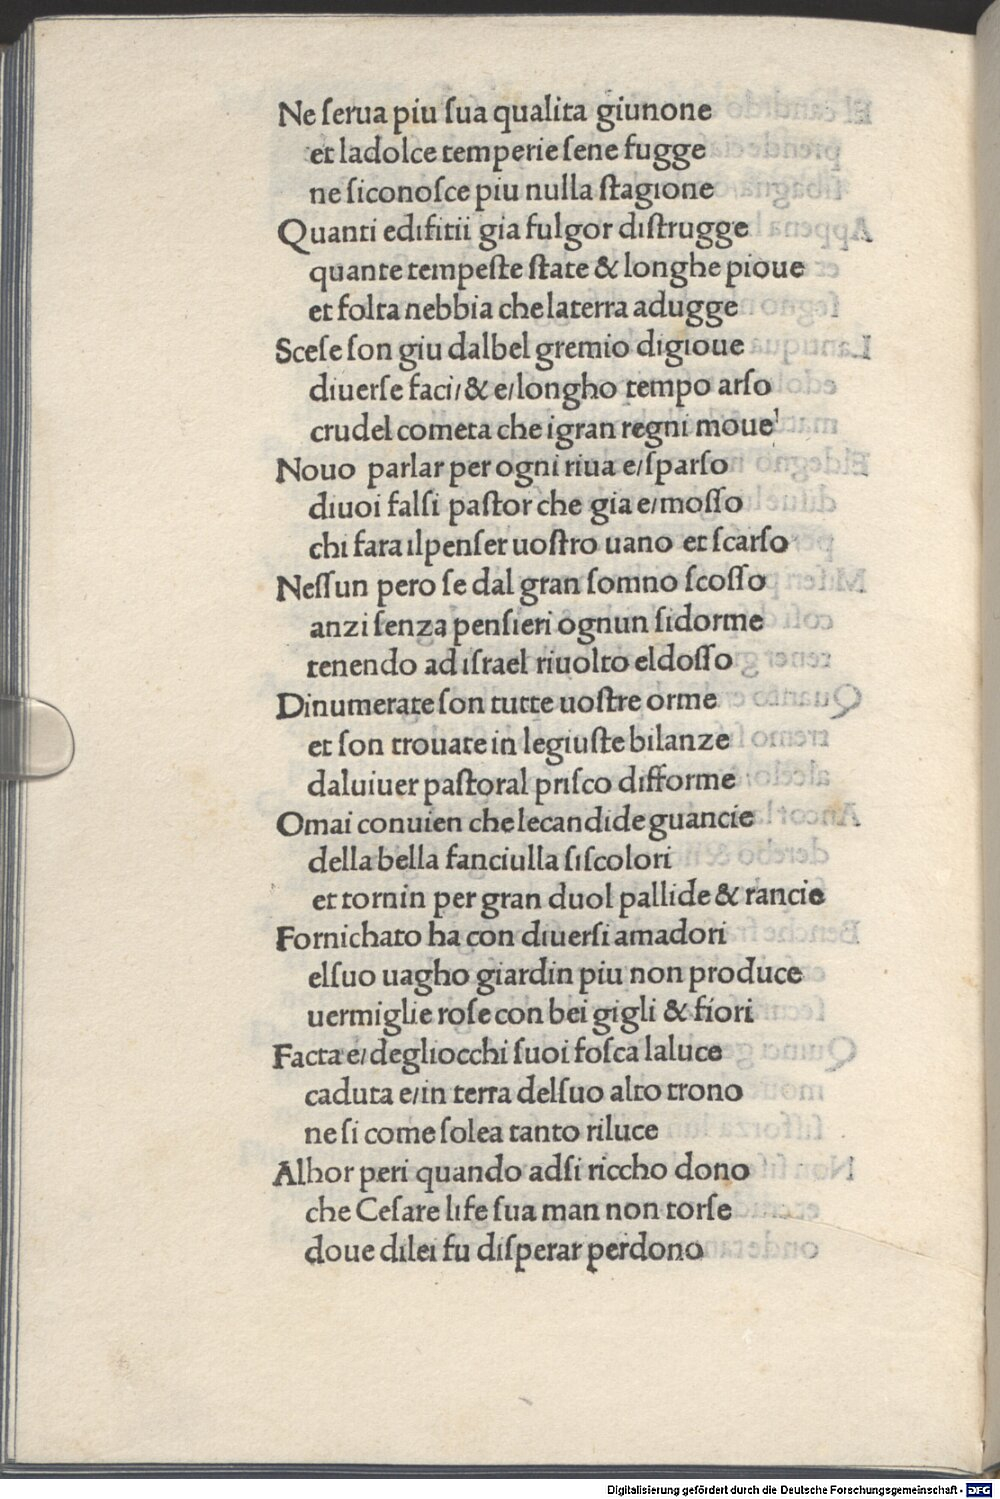 Ne ſerua piu ſua qualita giunone
et ladolce temperie ſene fugge
ne ſiconoſce piu nulla ſtagione
Quanti edifitii gia fulgor diſtrugge
quante tempeſte ſtate & longhe pioue
et folta nebbia che laterra adugge
Sceſe ſon giu dalbel gremio digioue
diuerſe faci/ & e/ longho tempo arſo
crudel cometa che igran regni moue
Nouo parlar per ogni riua e/ ſparſo
diuoi falſi paſtor che gia e/ moſſo
chi fara ilpenſer uoſtro uano et ſcarſo
Neſſun pero ſe dal gran ſomno ſcoſſo
anzi ſenza penſieri ognun ſidorme
tenendo ad iſrael riuolto eldoſſo
Dinumerate ſon tutte uoſtre orme
et ſon trouate in legiuſte bilanze
daluiuer paſtoral priſco difforme
Omai conuien che lecandide guancie
della bella fanciulla ſiſcolori
et tornin per gran duol pallide & rancie
Fornichato ha con diuerſi amadori
elſuo uagho giardin piu non produce
uermiglie roſe con bei gigli & fiori
Facta e/ degliocchi ſuoi foſca laluce
caduta e/ in terra delſuo alto trono
ne ſi come ſolea tanto riluce
Alhor peri quando adſi riccho dono
che Ceſare life ſua man non torſe
doue dilei fu diſperar perdono
Digitalisierung gefördert durch die Deutsche Forschungsgemeinschaft - DFG